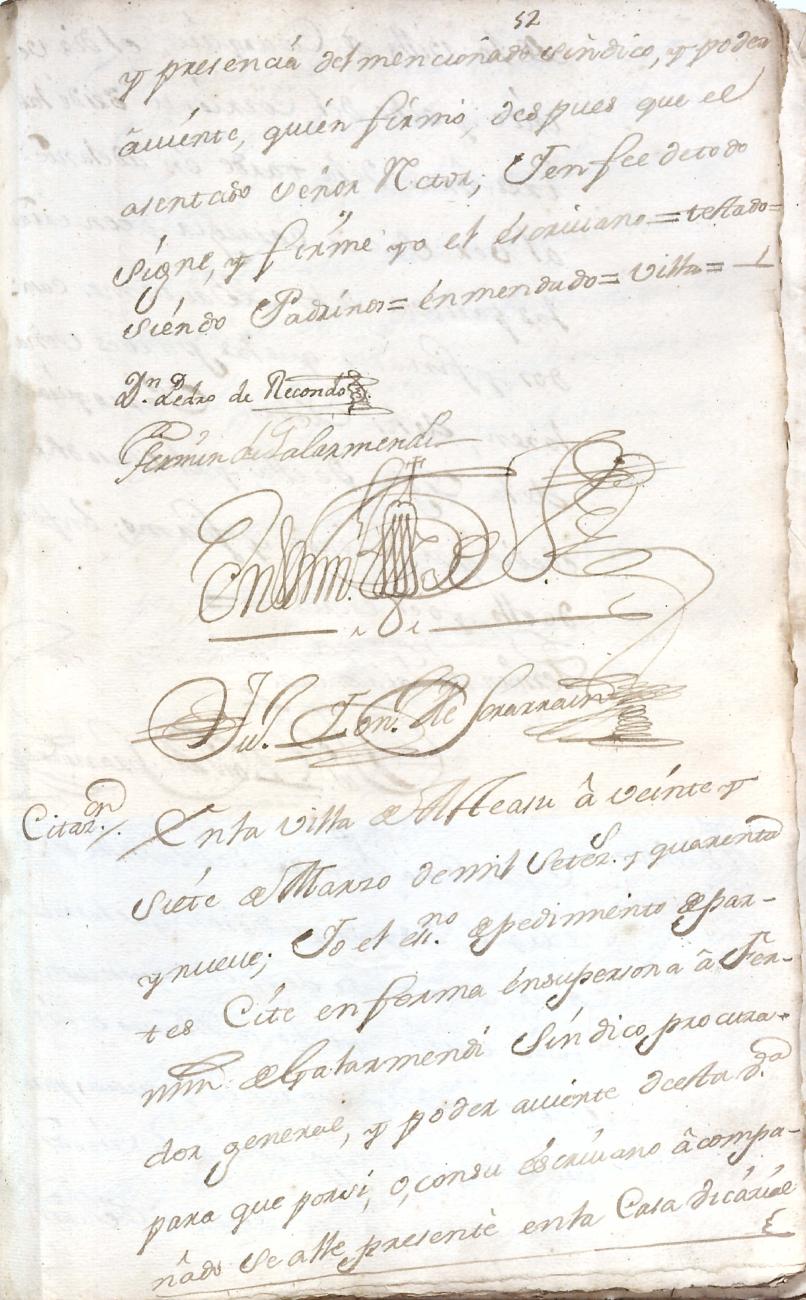 52
y presencia del mencionado sindico, y poder
auiente, quien firmó, despues que el
asentado señor Rctor; Yenfee detodo
signe, y firme yo el escriuano = testado =
siendo Padrinos = énmendado = villa =
Dn. Pedro de Recondo
Fermin de Galarmendi
Jul. Ion. de Yrarrain
Citaz.on /. En la villa de Ateasu â veinte y
siete de Marzo demil Setez.s y quarenta
y nueue; Yo el esn.no depedimiento depar-
tes Cite enforma énsupersona â Fer-
min deGalarmendi Síndico, procura-
dor general, y poder auiente deesta d.ha
para que porsi, o, consu éscriuano âcompa-
ñado se alle presente enla Casa